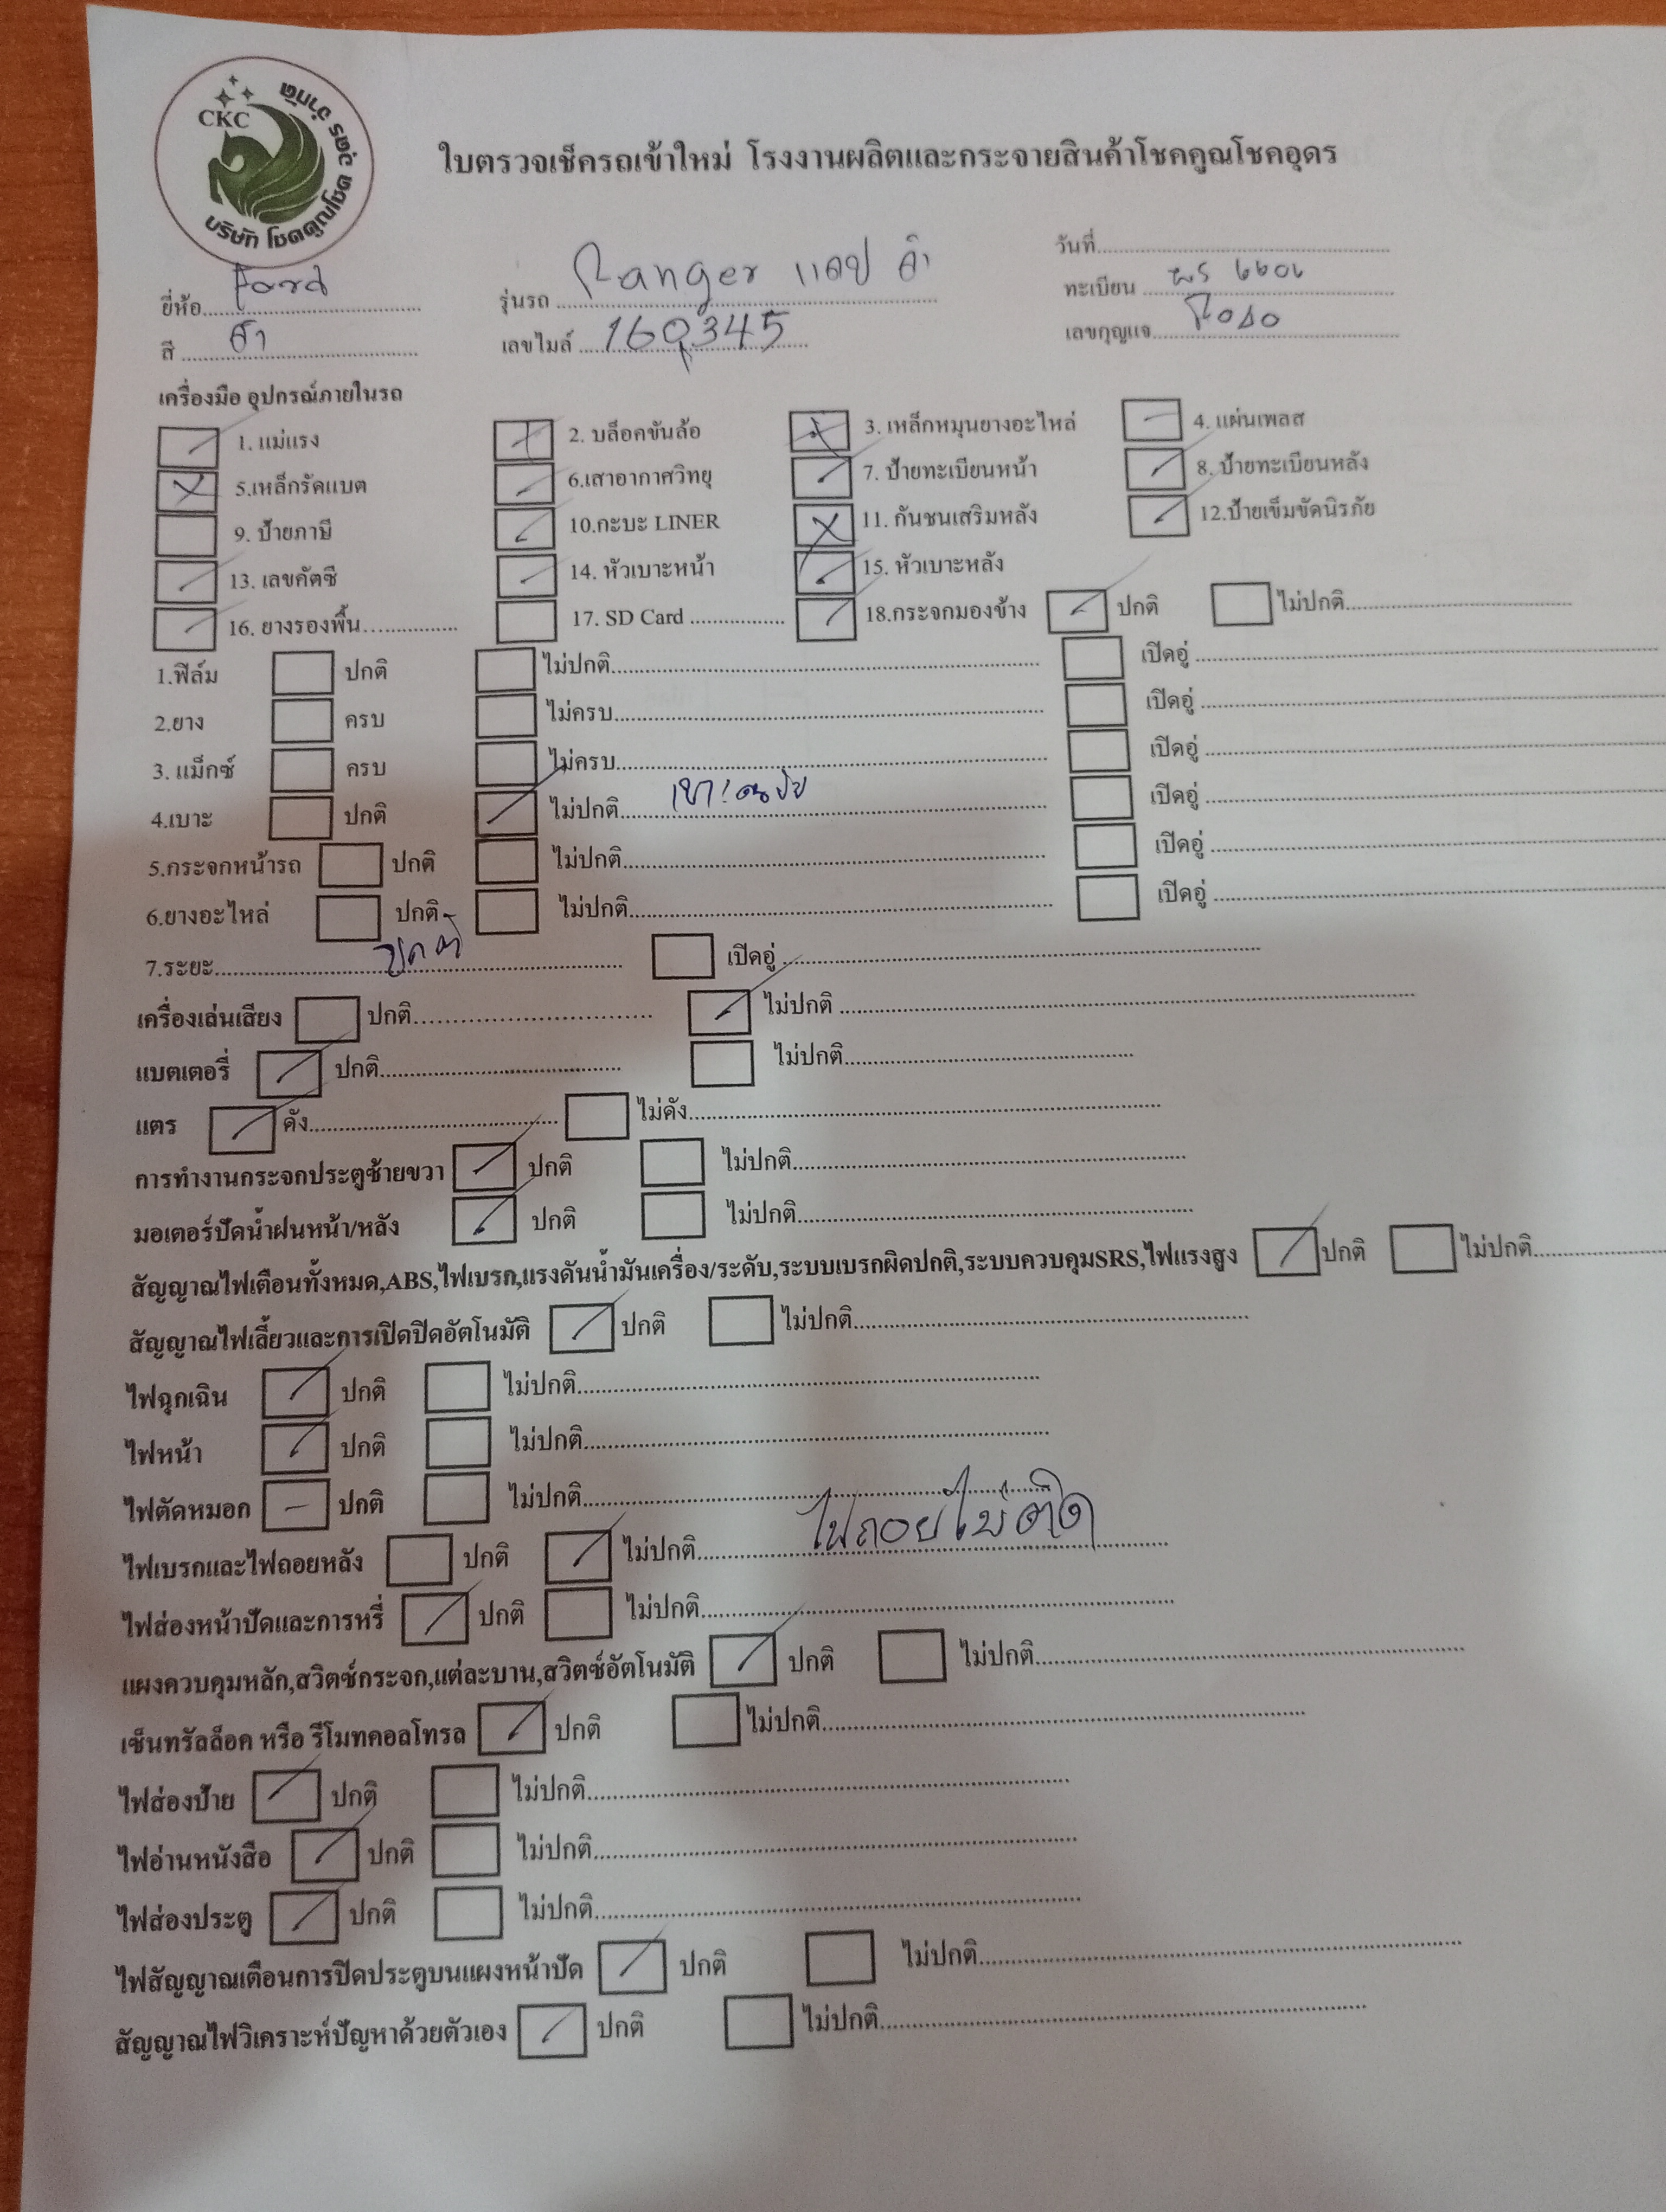 CKC
บริษัท โชคคูณโชค อุดร จำกัด
ใบตรวจเช็ครถเข้าใหม่ โรงงานผลิตและกระจายสินค้าโชคคูณโชคอุดร
วันที่
ยี่ห้อ Ford รุ่นรถ Ranger แคป ดำ ทะเบียน
สี ดำ เลขไมล์ 160,345 เลขกุญแจ
เครื่องมือ อุปกรณ์ภายในรถ
1. แม่แรง 2. บล็อคขันล้อ 3. เหล็กหมุนยางอะไหล่ 4. แผ่นเพลส
5.เหล็กรัดแบต 6.เสาอากาศวิทยุ 7. ป้ายทะเบียนหน้า 8. ป้ายทะเบียนหลัง
9. ป้ายภาษี 10.กะบะ LINER 11. กันชนเสริมหลัง 12.ป้ายเข็มขัดนิรภัย
13. เลขคัตซี 14. หัวเบาะหน้า 15. หัวเบาะหลัง
16. ยางรองพื้น 17. SD Card 18.กระจกมองข้าง ปกติ ไม่ปกติ
1.ฟีล์ม ปกติ ไม่ปกติ เปิดอู่
2.ยาง ครบ ไม่ครบ เปิดอู่
3. แม็กซ์ ครบ ไม่ครบ เปิดอู่
4.เบาะ ปกติ ไม่ปกติ เปิดอู่
5.กระจกหน้ารถ ปกติ ไม่ปกติ เปิดอู่
6.ยางอะไหล่ ปกติ ไม่ปกติ เปิดอู่
7.ระยะ ปกติ เปิดอู่
เครื่องเล่นเสียง ปกติ ไม่ปกติ
แบตเตอรี่ ปกติ ไม่ปกติ
แตร ดัง ไม่ดัง
การทำงานกระจกประตูซ้ายขวา ปกติ ไม่ปกติ
มอเตอร์ปัดน้ำฝนหน้า/หลัง ปกติ ไม่ปกติ
สัญญาณไฟเตือนทั้งหมด,ABS,ไฟเบรก,แรงดันน้ำมันเครื่อง/ระดับ,ระบบเบรกผิดปกติ,ระบบควบคุมSRS,ไฟแรงสูง ปกติ ไม่ปกติ
สัญญาณไฟเลี้ยวและการเปิดปิดอัตโนมัติ ปกติ ไม่ปกติ
ไฟฉุกเฉิน ปกติ ไม่ปกติ
ไฟหน้า ปกติ ไม่ปกติ
ไฟตัดหมอก ปกติ ไม่ปกติ
ไฟเบรกและไฟถอยหลัง ปกติ ไม่ปกติ ไฟถอยไม่ติด
ไฟส่องหน้าปัดและการหรี่ ปกติ ไม่ปกติ
แผงควบคุมหลัก,สวิตซ์กระจก,แต่ละบาน,สวิตซ์อัตโนมัติ ปกติ ไม่ปกติ
เซ็นทรัลล็อค หรือ รีโมทคอลโทรล ปกติ ไม่ปกติ
ไฟส่องป้าย ปกติ ไม่ปกติ
ไฟอ่านหนังสือ ปกติ ไม่ปกติ
ไฟส่องประตู ปกติ ไม่ปกติ
ไฟสัญญาณเตือนการปิดประตูบนแผงหน้าปัด ปกติ ไม่ปกติ
สัญญาณไฟวิเคราะห์ปัญหาด้วยตัวเอง ปกติ ไม่ปกติ